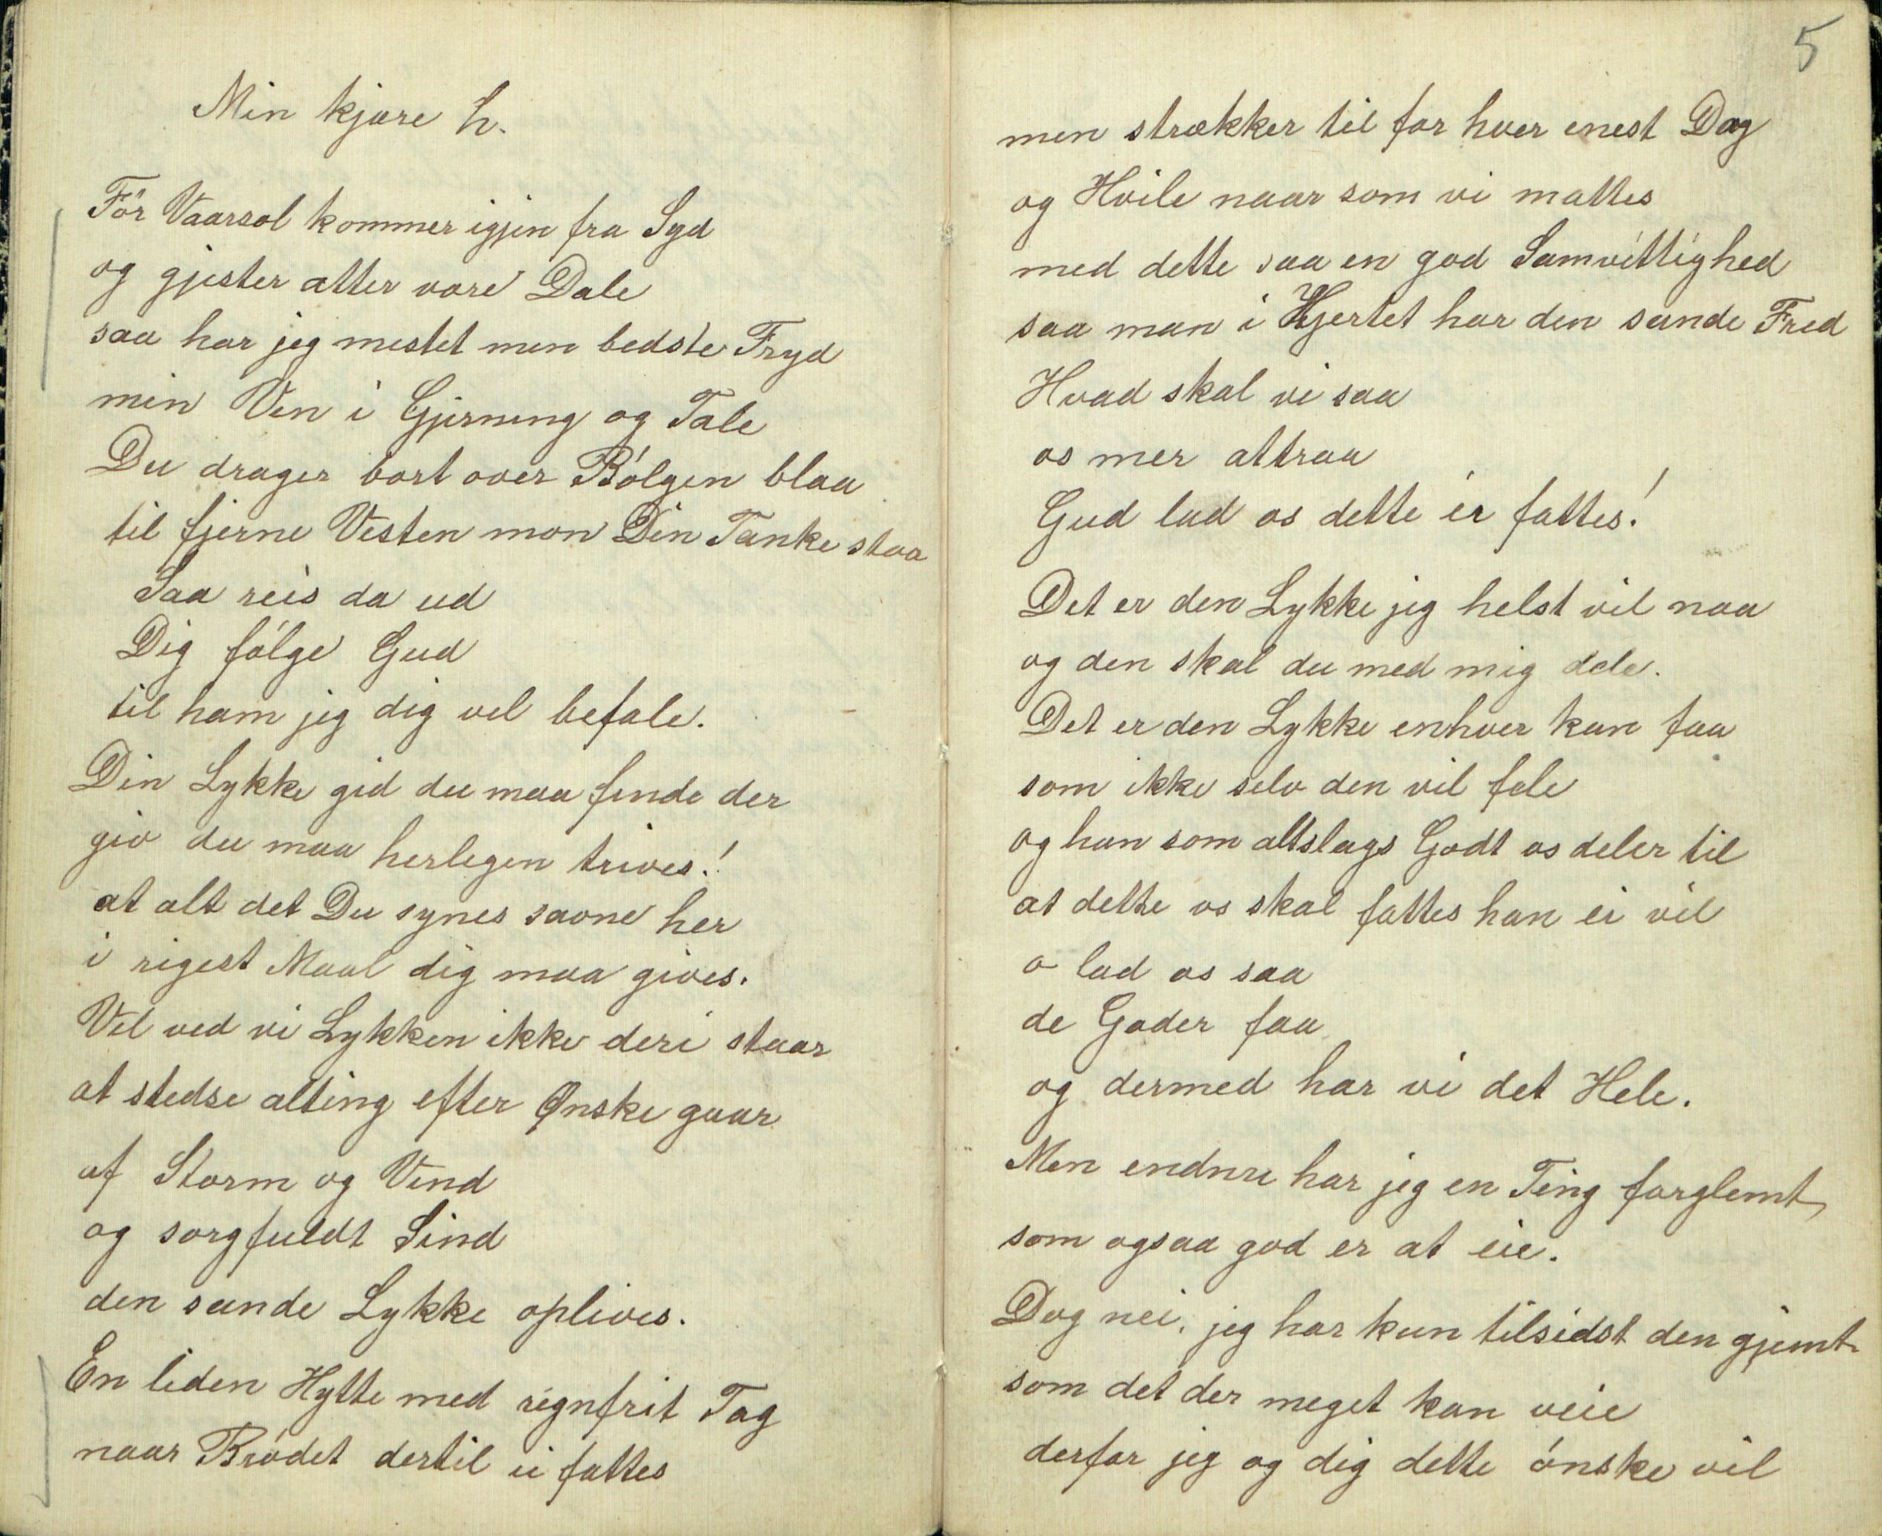 Min kjære h.
Før Vaarsol kommer igjen fra Syd
og gjester atter vore Dale
saa har jeg mestet min bedste Fryd
min Ven i Gjerning og Tale
Du drager bort over Bølgen blaa
til fjerne Vesten mon Din Tanke staa
Saa reis da ud
Dig følge Gud
til ham jeg dig vel befale.
Din Lykke gid du maa finde der
giv du maa herligen trives!
at alt det Du synes savne her
i rigest Maal dig maa gives.
Vel ved vi Lykken ikke deri staar
at stedse alting efter Ønske gaar
af Storm og Vind
og sorgfuldt Sind
den sande Lykke oplives.
En liden Hytte med regnfrit Tag
naar Brødet dertil ei fattes
5
men strækker til for hver enest Dag
og Hvile naar som vi mattes
med dette saa en god Samvittighed
saa man i Hjertet har den sande Fred
Hvad skal vi saa
os mer attraa
Gud lad os dette ei fattes!
Det er den Lykke jeg helst vil naa
og den skal du med mig dele.
Det er den Lykke enhver kan faa
som ikke selv den vil fele
og han som altslags Godt os deler til
at dette os skal fattes han ei vil
o lad os saa
de Goder faa
og dermed har vi det Hele.
Men endnu har jeg en Ting forglemt
som ogsaa god er at eie.
Dog nei, jeg har kun tilsidst den gjemt
som det der meget kan veie
derfor jeg og dig dette ønske vil